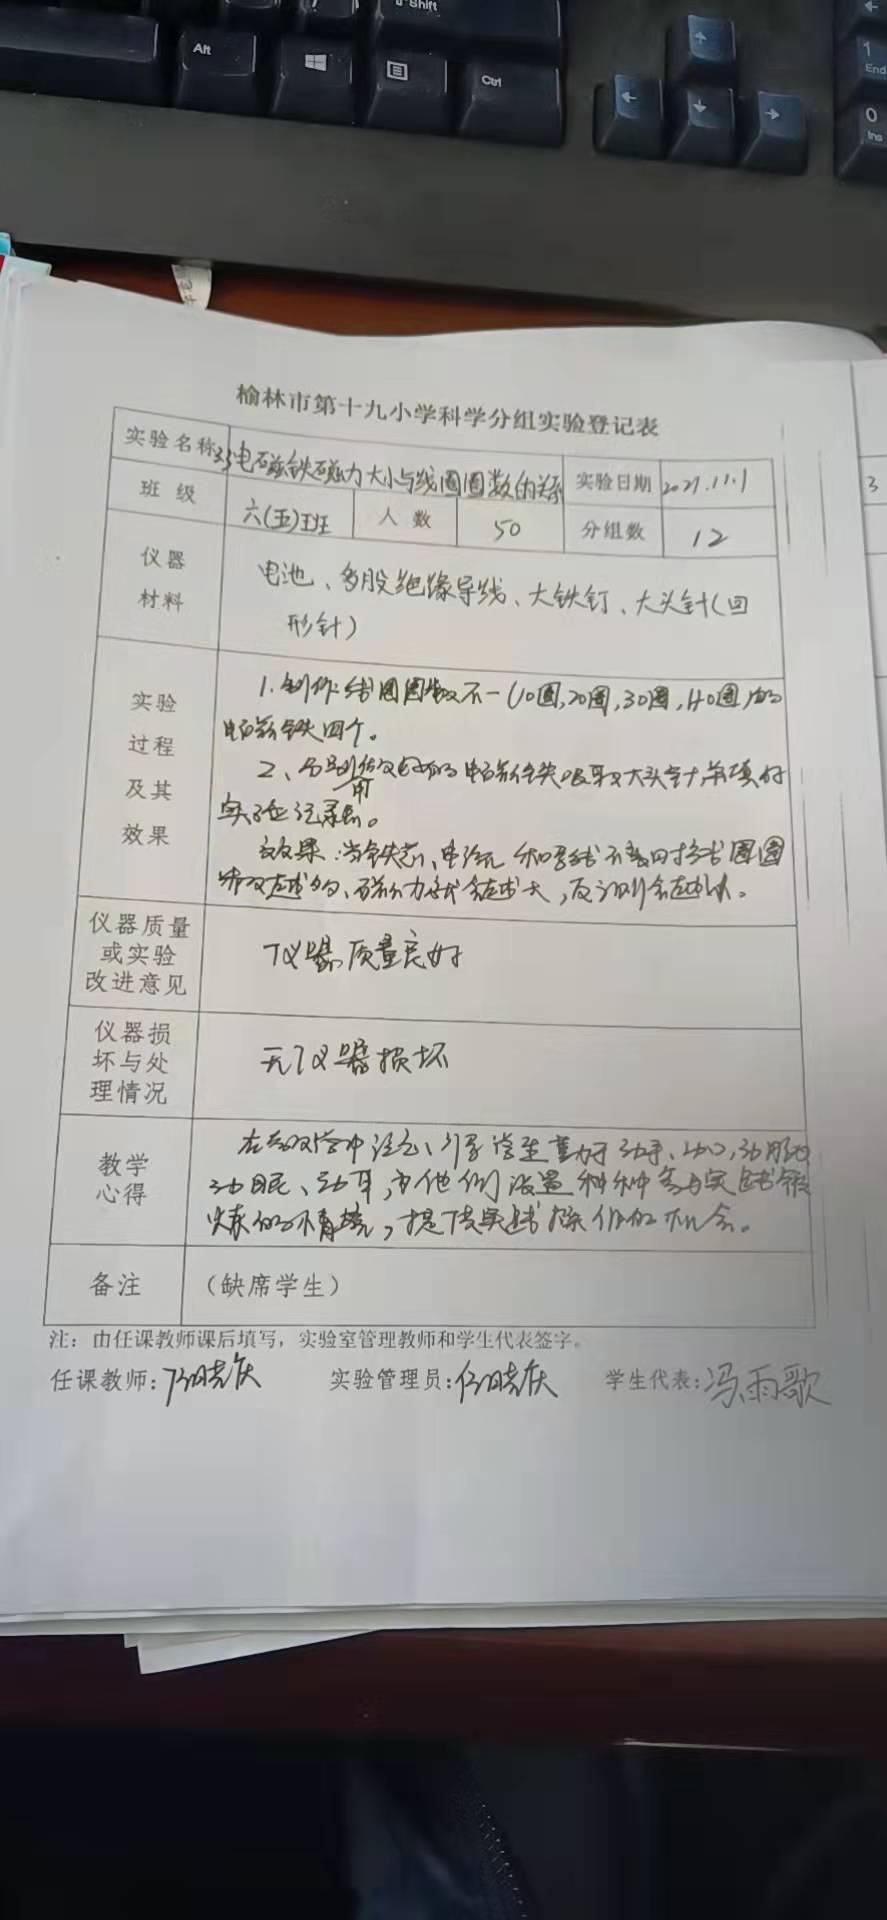 Shift
Alt
Ctrl
1
End
0
Ins
榆林市第十九小学科学分组实验登记表
实验名称 33电磁铁磁力大小与线圈圈数的关系 实验日期 2021.11.1
班级 六(五)班 人数 50 分组数 12
仪器材料
电池、多股绝缘导线、大铁钉、大头针(回
形针)
实验过程及其效果
1.制作线圈圈数不一(10圈,20圈,30圈,40圈)的
电磁铁四个。
2、分别用做好的电磁铁吸取大头针,并填好
实验记录。
效果:当铁芯、电流和导线不变时,线圈圈
数越多,磁力就会越大,反之则会越小。
仪器质量或实验改进意见
仪器质量良好
仪器损坏与处理情况
无仪器损坏
教学心得
在教学中注意引导学生善于动手、动口,动脑
动眼、动耳,为他们设置种种参与实践锻
炼的情境,提供实践操作的机会。
备注 (缺席学生)
注:由任课教师课后填写,实验室管理教师和学生代表签字。
任课教师: 实验管理员: 学生代表:冯雨歌
3